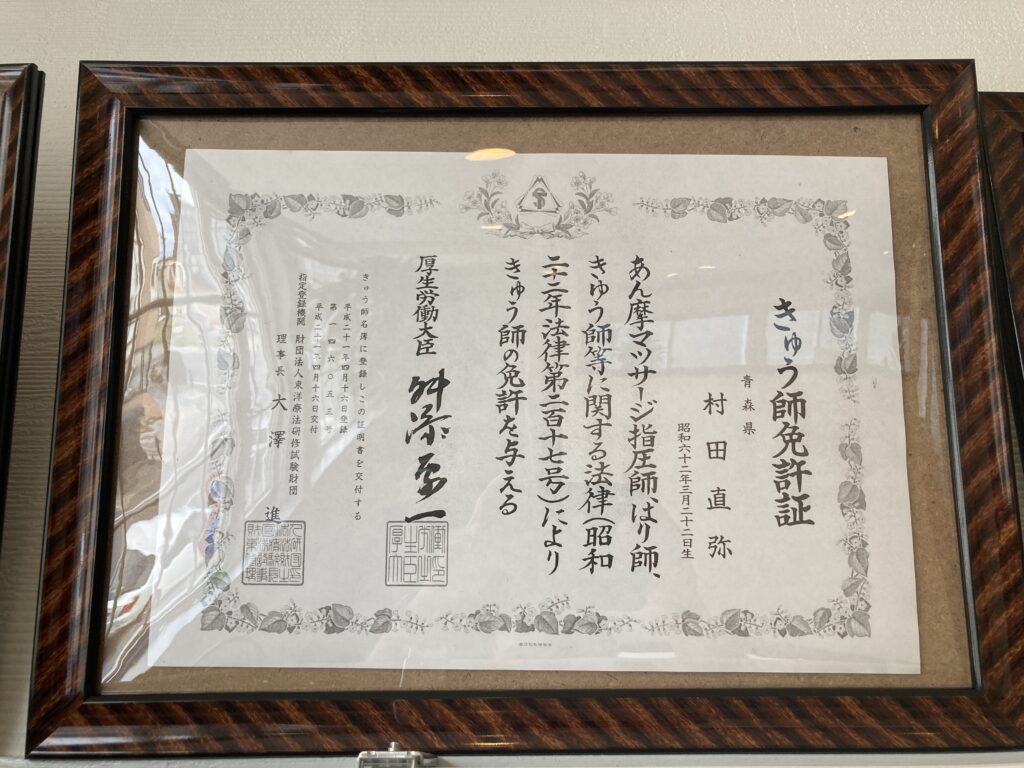 きゅう師免許証
青森県
村田直弥
昭和六十二年三月二十二日生
あん摩マツサージ指圧師、はり師、
きゆう師等に関する法律(昭和
二十二年法律第二百十七号)により
きゅう師の免許を与える
厚生労働大臣 舛添要一
きゅう師名簿に登録しこの証明書を交付する
平成二十一年四月十六日登録
第一四六〇五三号
平成二十一年四月十六日交付
指定登録機関 財団法人東洋療法研修試験財団
理事長 大澤 進